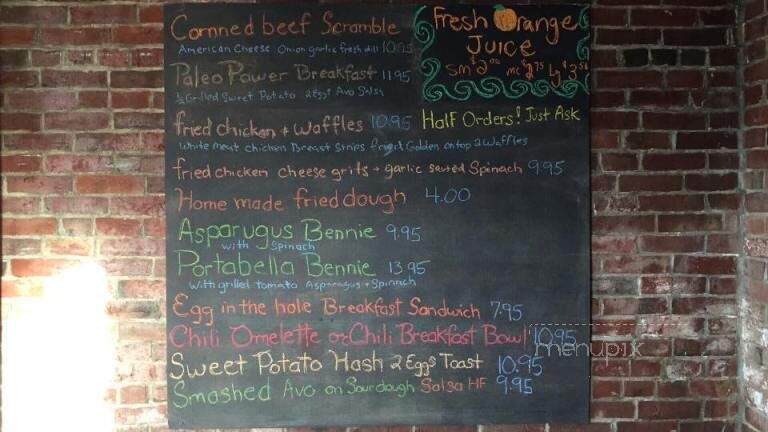 Cornned beef Scramble
American Cheese Onion garlic fresh dill 10.95
Paleo Power Breakfast 11.95
½ Grilled Sweet Potato 2 Eggs Avo Salsa
fried chicken + Waffles 10.95
White meat chicken Breast Strips fried Golden on top 2 Waffles
fried chicken cheese grits + garlic sauted Spinach 9.95
Home made fried dough 4.00
Asparugus Bennie 9.95
with Spinach
Portabella Bennie 13.95
With grilled tomato Asparagus + Spinach
Egg in the hole Breakfast Sandwich 7.95
Chili Omelette or Chili Breakfast Bowl 10.95
Sweet Potato Hash 2 Eggs Toast 10.95
Smashed Avo on Sourdough Salsa HF 9.95
Fresh Orange
Juice
sm $2.00 mc $2.75 Lg $3.50
Half Orders! Just Ask
menupix